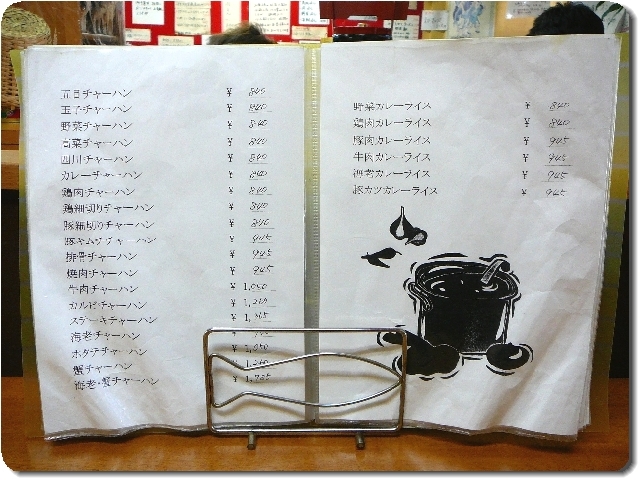 五目チャーハン ¥ 840
玉子チャーハン ¥ 840
野菜チャーハン ¥ 840
高菜チャーハン ¥ 840
四川チャーハン ¥ 840
カレーチャーハン ¥ 840
鶏肉チャーハン ¥ 840
鶏細切りチャーハン ¥ 840
豚細切りチャーハン ¥ 840
豚キムチチャーハン ¥ 945
排骨チャーハン ¥ 945
焼肉チャーハン ¥ 945
牛肉チャーハン ¥ 1,050
カルビチャーハン ¥
ステーキチャーハン ¥
海老チャーハン
ホタテチャーハン ¥ 1,050
蟹チャーハン
海老・蟹チャーハン ¥
野菜カレーライス ¥ 840
鶏肉カレーライス ¥ 840
豚肉カレーライス ¥ 945
牛肉カレーライス ¥ 945
海老カレーライス ¥ 945
豚カツカレーライス ¥ 945